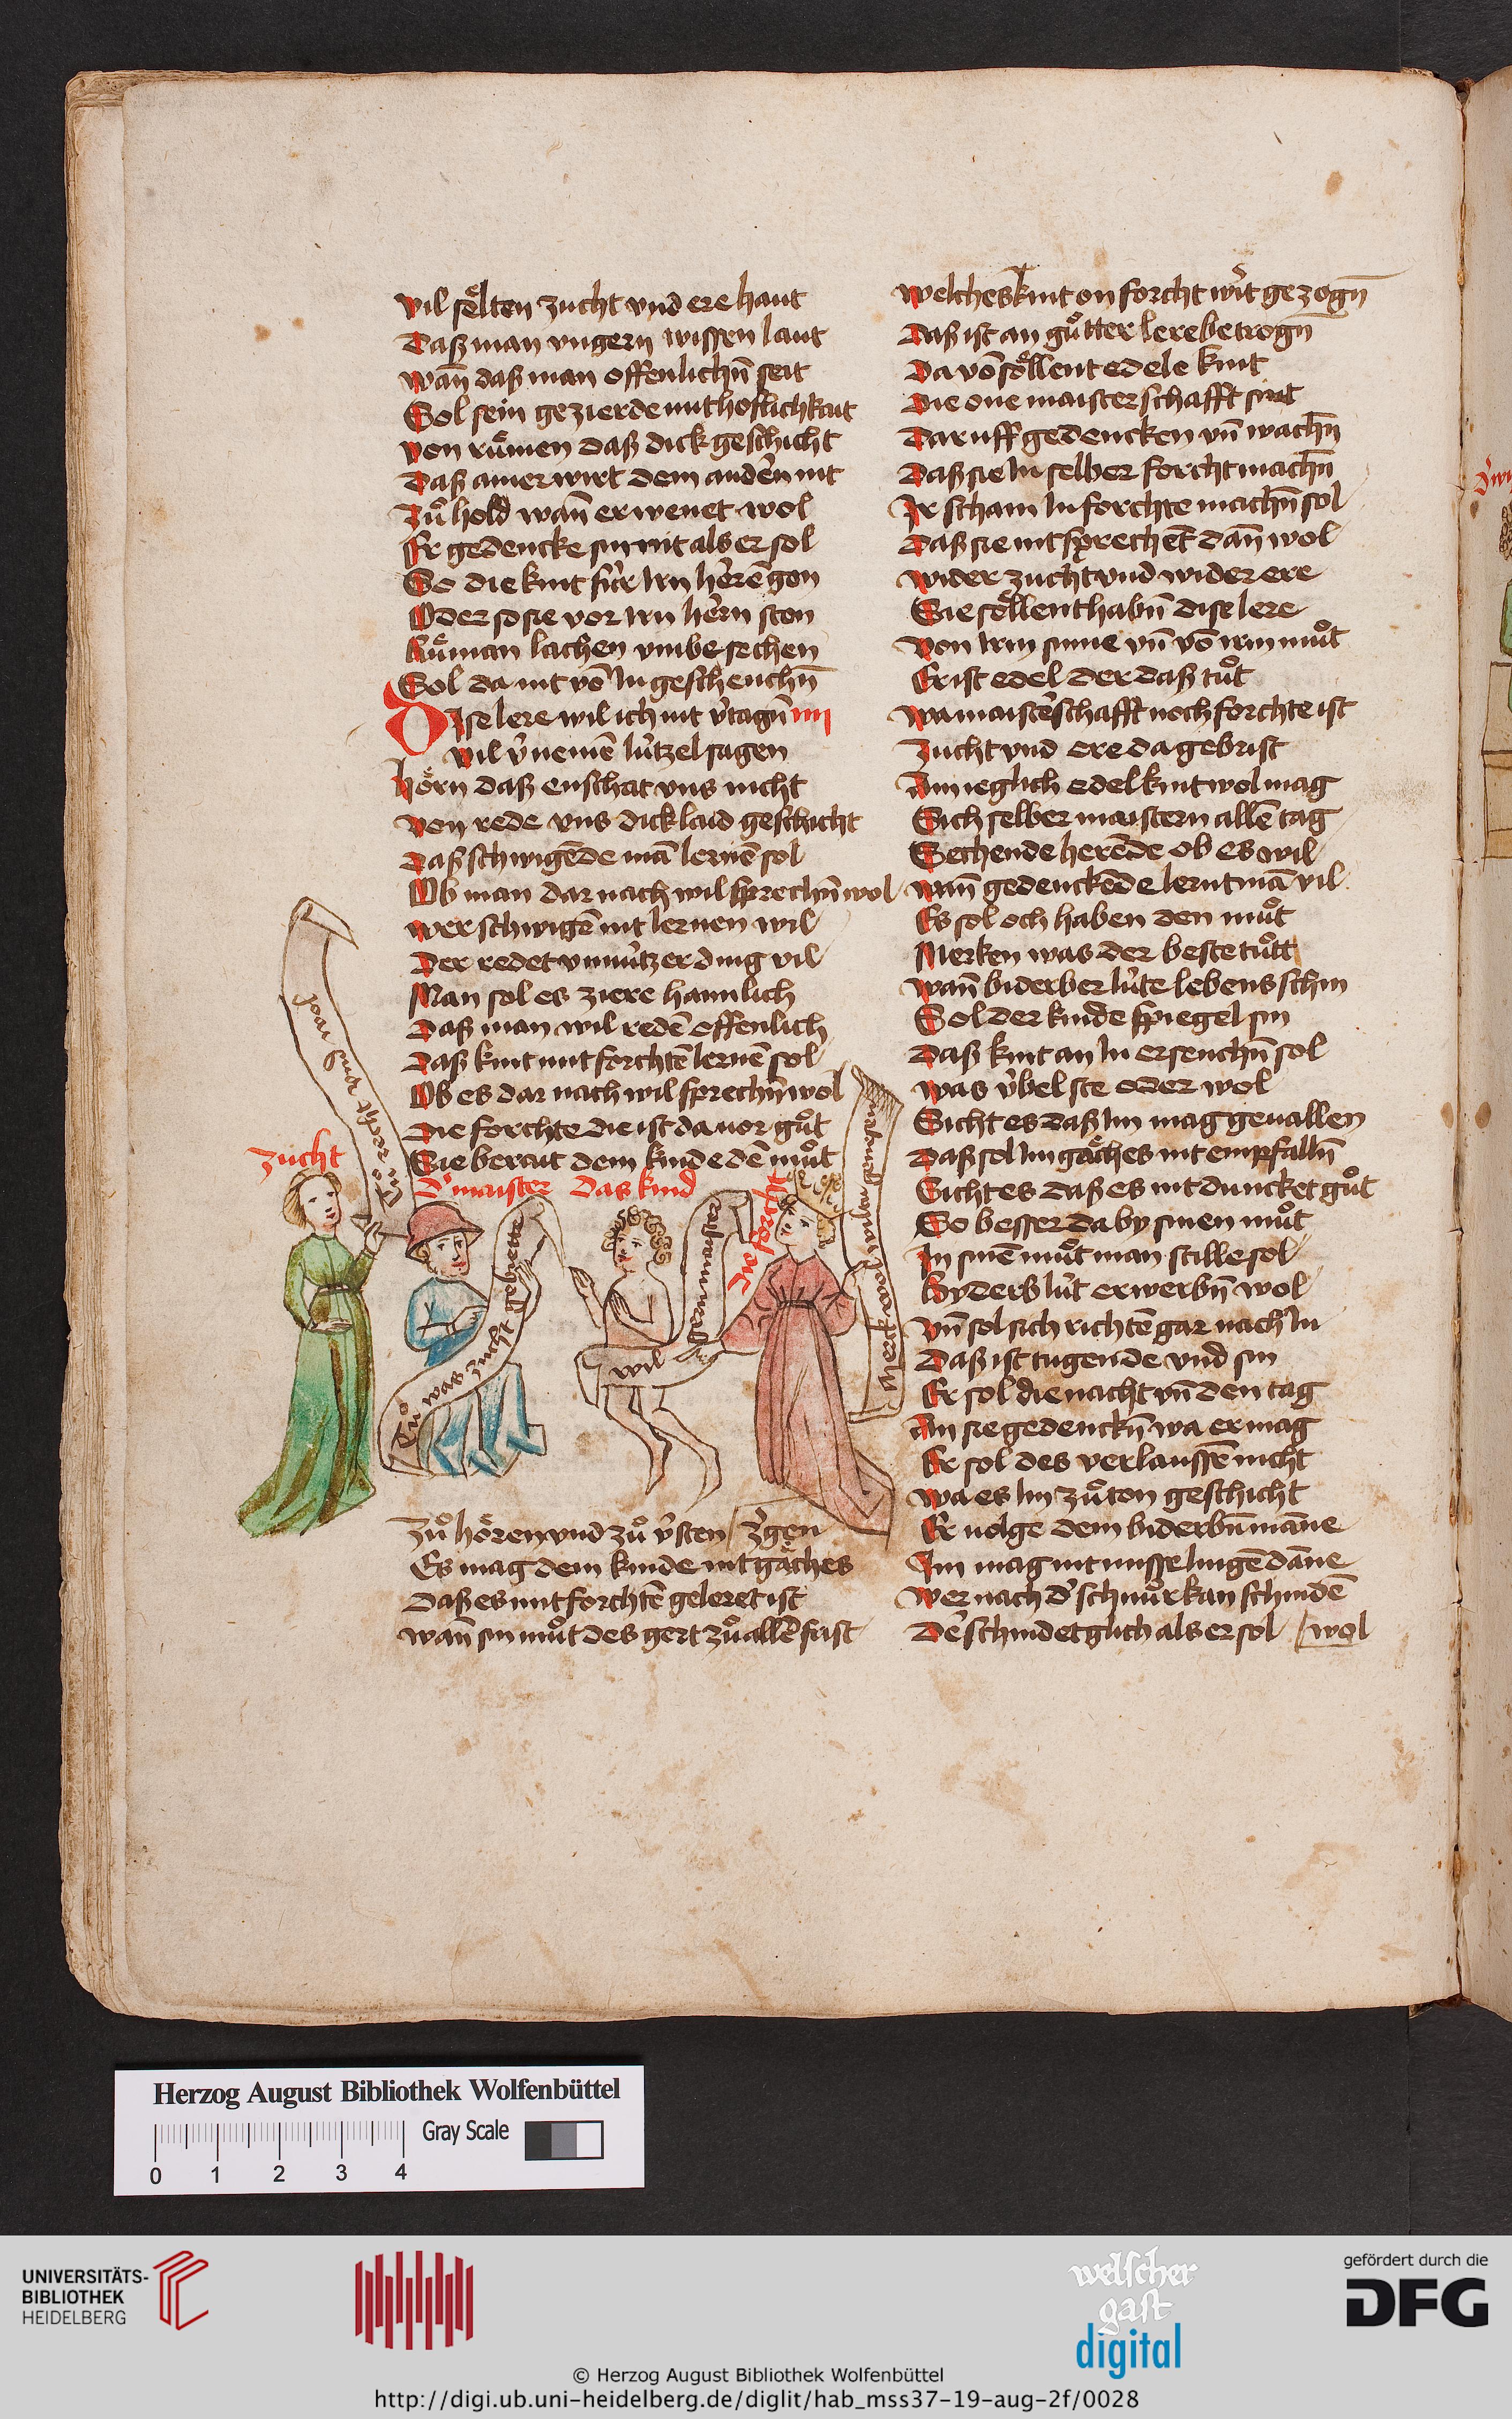 vil sëlten zucht vnd ere haut
Daß man vngern wissen laut
wañ daß man offenlichñ seit
Sol sein gezierde mit hoflichkait
von rüͤmen daß dick geschicht
Daß ainer wirt dem andern nit
Zuͦ hold wañ er wenet wol
Er gedencke sin nit als er sol
So die kint für irn herẽ gon
Oder so sie vor irn hern ston
Rüͤman lachen vmbe sechen
Sol da nit võ in geschenchñ
Dise lere wil ich nit v̉tagñ iiii
vil v̉nemẽ lützel sagen
hörn daß enschat vns nicht
von rede vns dick laid geschicht
Daß schwigẽde mã lernẽ sol
Ob man dar nach wil sprechñ wol
wer schwigẽ nit lernen wil
Der redet vnnützer ding vil
Man sol es ziere haimlich
Daß man wil redẽ offenlich
Daß kint mit forchtẽ lernẽ sol
Ob es dar nach wil sprechñ wol
Die forchte die ist da uor guͦt
Sie berait dem kinde dẽ muͦt
zucht
D' maister
Das kind
die forcht
Tuͦ was zucht gebiette
wil
Zuͦ hören vnd zuͦ v̉sten / z̉gen
Es mag dem kinde nit gäches
Daß es mit forchtẽ geleret ist
wañ sin muͦt des gert zuͦ allẽ fast
welches kint on forcht wirt gezogñ
Daß ist an guͦtter lere betrogñ
Da võ söllent edele kint
Die one maisterschafft sint
Dar uff gedencken vñ wachñ
Daß sie in selber forcht machñ
Ir scham in forchte machñ sol
Daß sie nit sprechẽt dañ wol
wider zucht vnd wider ere
Sie söllent habñ dise lere
von irm sinne vñ võ irm muͦt
Er ist edel der daß tuͦt
wa maist'schafft noch forchte ist
Zucht vnd ere da gebrist
Ain ieglich edel kint wol mag
Sich selber maistern allẽ tag
Sechende herẽde ob es wil
wañ gedenckẽde lernt mã vil
Es sol och haben den muͦt
Merken was der beste tuͦtt
wañ biderber lüte lebens schin
Sol der kinde spiegel sin
Daß kint an in ersenchñ sol
was v̉bel ste oder wol
Sicht es daß im mag geuallen
Daß sol im gäches nit empfallñ
Sicht es daß es nit duncket guͦt
So besser da by sinen muͦt
In sinẽ muͦt man stille sol
Byderb lüt erwerbñ wol
vñ sol sich richtẽ gar nach in
Daß ist tugende vnd sin
Er sol die nacht vñ den tag
An sie gedenckñ wa er mag
Er sol des verlaussẽ nicht
wa es im zuͦ ton geschicht
Er uolge dem biderbñ mãne
Im mag nit misse lingẽ dãne
wer nach d' schnuͦr kan schindẽ
De' schindet glich als er sol / wol
Herzog August Bibliothek Wolfenbüttel
Gray Scale
0 1 2 3 4
UNIVERSITÄTS-
BIBLIOTHEK
HEIDELBERG
welscher
gast
digital
gefördert durch die
DFG
© Herzog August Bibliothek Wolfenbüttel
http://digi.ub.uni-heidelberg.de/diglit/hab_mss37-19-aug-2f/0028